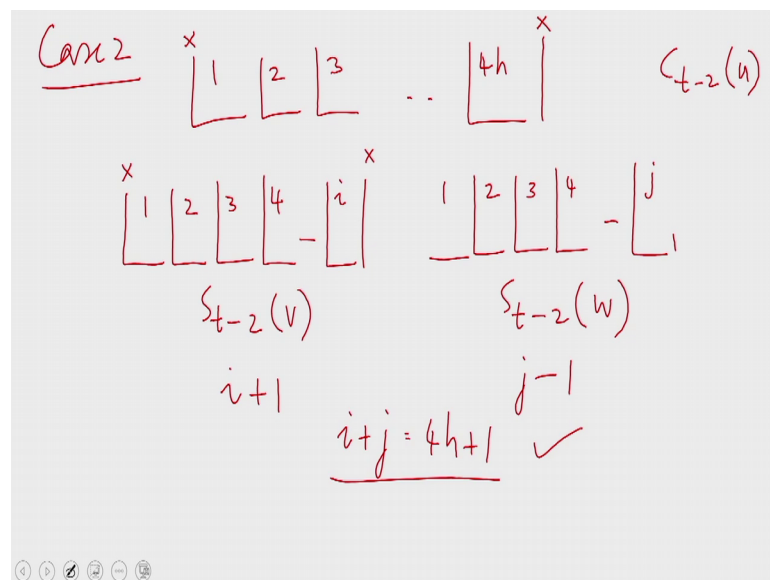 Case 2
x x
1 2 3 .. 4h
C_{t-2}(u)
x x
1 2 3 4 - i
1 2 3 4 - j
S_{t-2}(v) S_{t-2}(w)
i+1 j-1
i+j = 4h+1 ✓